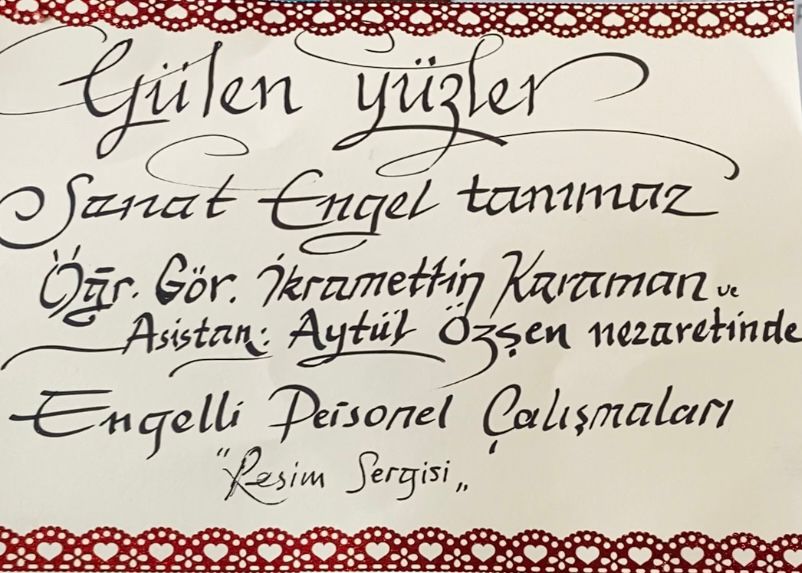 Gülen yüzler
Sanat Engel tanımaz
Öğr. Gör. İkramettin Karaman ve
Asistan: Aytül Özşen nezaretinde
Engelli Personel Çalışmaları
"Resim Sergisi„